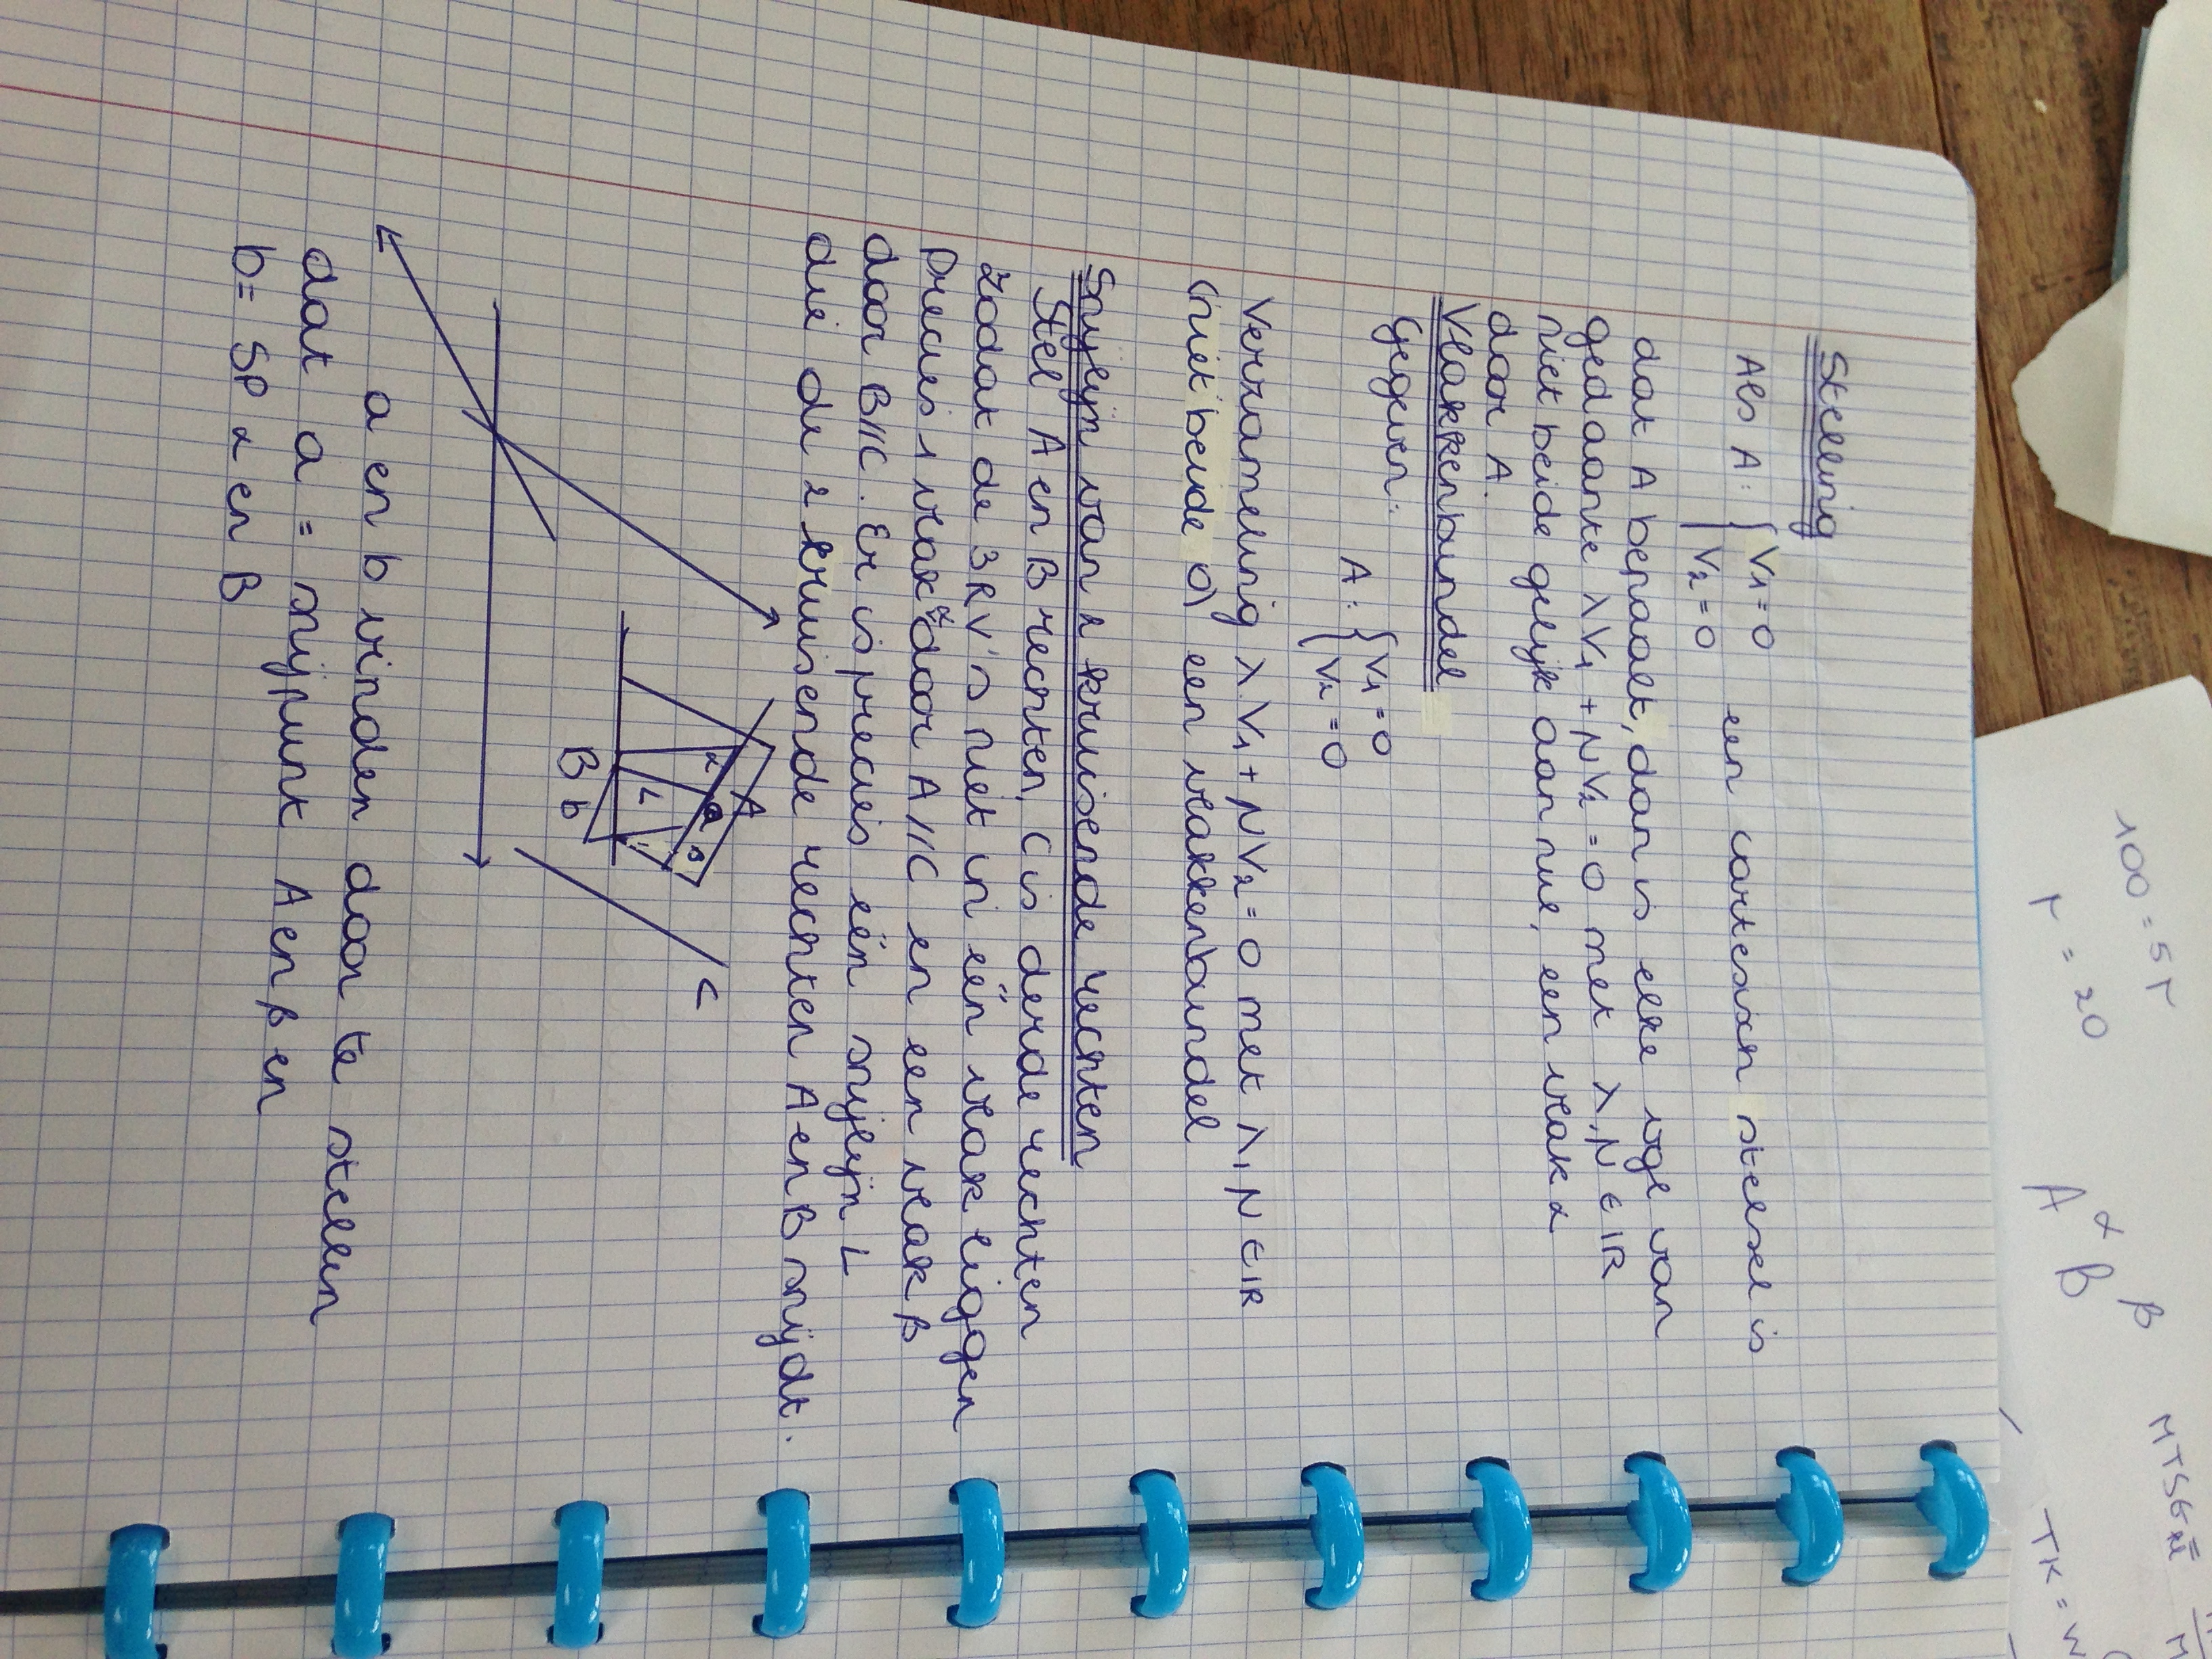 Stelling
Als A: { V₁ = 0 een cartesian stelsel is
V₂ = 0
dat A bepaalt, dan is elke vgl van
gedaante λV₁ + μV₂ = 0 met λ, μ ∈ IR
niet beide gelijk aan nul, een vlak α
door A.
Vlakkenbundel
Gegeven:
A: { V₁ = 0
V₂ = 0
Verzameling λV₁ + μV₂ = 0 met λ, μ ∈ IR
(niet beide 0) een vlakkenbundel
Snijlijn van 2 kruisende rechten
Stel A en B rechten, C is derde rechten
zodat de 3 RV's niet in één vlak liggen
Precies 1 vlak α door A//C en een vlak β
door B//C. Er is precies één snijlijn L
die de 2 kruisende rechten A en B snijdt.
A
α
a
β
L
B b
C
a en b vinden door te stellen
dat a = snijpunt A en β en
b = SP α en B
100 = 5r
r = 20
α β
A B
MTSG
TK = W